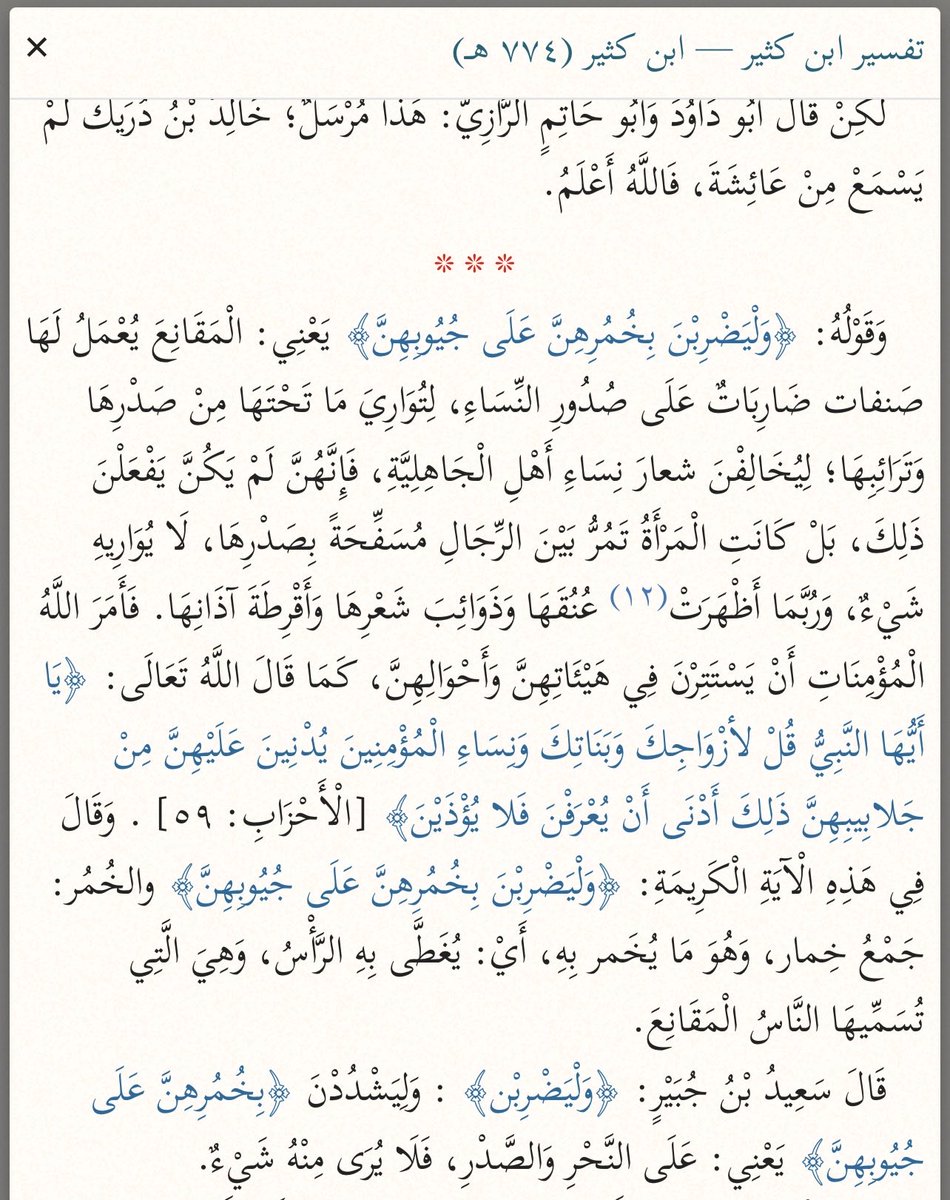 تفسير ابن كثير — ابن كثير (٧٧٤ هـ)
×
لَكِنْ قَالَ أَبُو دَاوُدَ وَأَبُو حَاتِمٍ الرَّازِيّ: هَذَا مُرْسَلٌ؛ خَالِدُ بْنُ دُرَيك لَمْ
يَسْمَعْ مِنْ عَائِشَةَ، فَاللَّهُ أَعْلَمُ.
* * *
وَقَوْلُهُ: ﴿وَلْيَضْرِبْنَ بِخُمُرِهِنَّ عَلَى جُيُوبِهِنَّ﴾ يَعْنِي: الْمَقَانِعَ يُعْمَلُ لَهَا
صَنفات ضَارِبَاتٌ عَلَى صُدُورِ النِّسَاءِ، لِتُوَارِيَ مَا تَحْتَهَا مِنْ صَدْرِهَا
وَتَرَائِبِهَا؛ لِيُخَالِفْنَ شعارَ نِسَاءِ أَهْلِ الْجَاهِلِيَّةِ، فَإِنَّهُنَّ لَمْ يَكُنَّ يَفْعَلْنَ
ذَلِكَ، بَلْ كَانَتِ الْمَرْأَةُ تَمُرُّ بَيْنَ الرِّجَالِ مُسَفِّحَةً بِصَدْرِهَا، لَا يُوَارِيهِ
شَيْءٌ، وَرُبَّمَا أَظْهَرَتْ(١٢) عُنُقَهَا وَذَوَائِبَ شَعْرِهَا وَأَقْرِطَةَ آذَانِهَا. فَأَمَرَ اللَّهُ
الْمُؤْمِنَاتِ أَنْ يَسْتَتِرْنَ فِي هَيْئَاتِهِنَّ وَأَحْوَالِهِنَّ، كَمَا قَالَ اللَّهُ تَعَالَى: ﴿يَا
أَيُّهَا النَّبِيُّ قُلْ لأزْوَاجِكَ وَبَنَاتِكَ وَنِسَاءِ الْمُؤْمِنِينَ يُدْنِينَ عَلَيْهِنَّ مِنْ
جَلابِيبِهِنَّ ذَلِكَ أَدْنَى أَنْ يُعْرَفْنَ فَلا يُؤْذَيْنَ﴾ [الْأَحْزَابِ: ٥٩] . وَقَالَ
فِي هَذِهِ الْآيَةِ الْكَرِيمَةِ: ﴿وَلْيَضْرِبْنَ بِخُمُرِهِنَّ عَلَى جُيُوبِهِنَّ﴾ والخُمُر:
جَمْعُ خِمار، وَهُوَ مَا يُخَمر بِهِ، أَيْ: يُغَطَّى بِهِ الرَّأْسُ، وَهِيَ الَّتِي
تُسَمِّيهَا النَّاسُ الْمَقَانِعَ.
قَالَ سَعِيدُ بْنُ جُبَيْرٍ: ﴿وَلْيَضْرِبْن﴾ : وَلِيَشْدُدْنَ ﴿بِخُمُرِهِنَّ عَلَى
جُيُوبِهِنَّ﴾ يَعْنِي: عَلَى النَّحْرِ وَالصَّدْرِ، فَلَا يُرَى مِنْهُ شَيْءٌ.